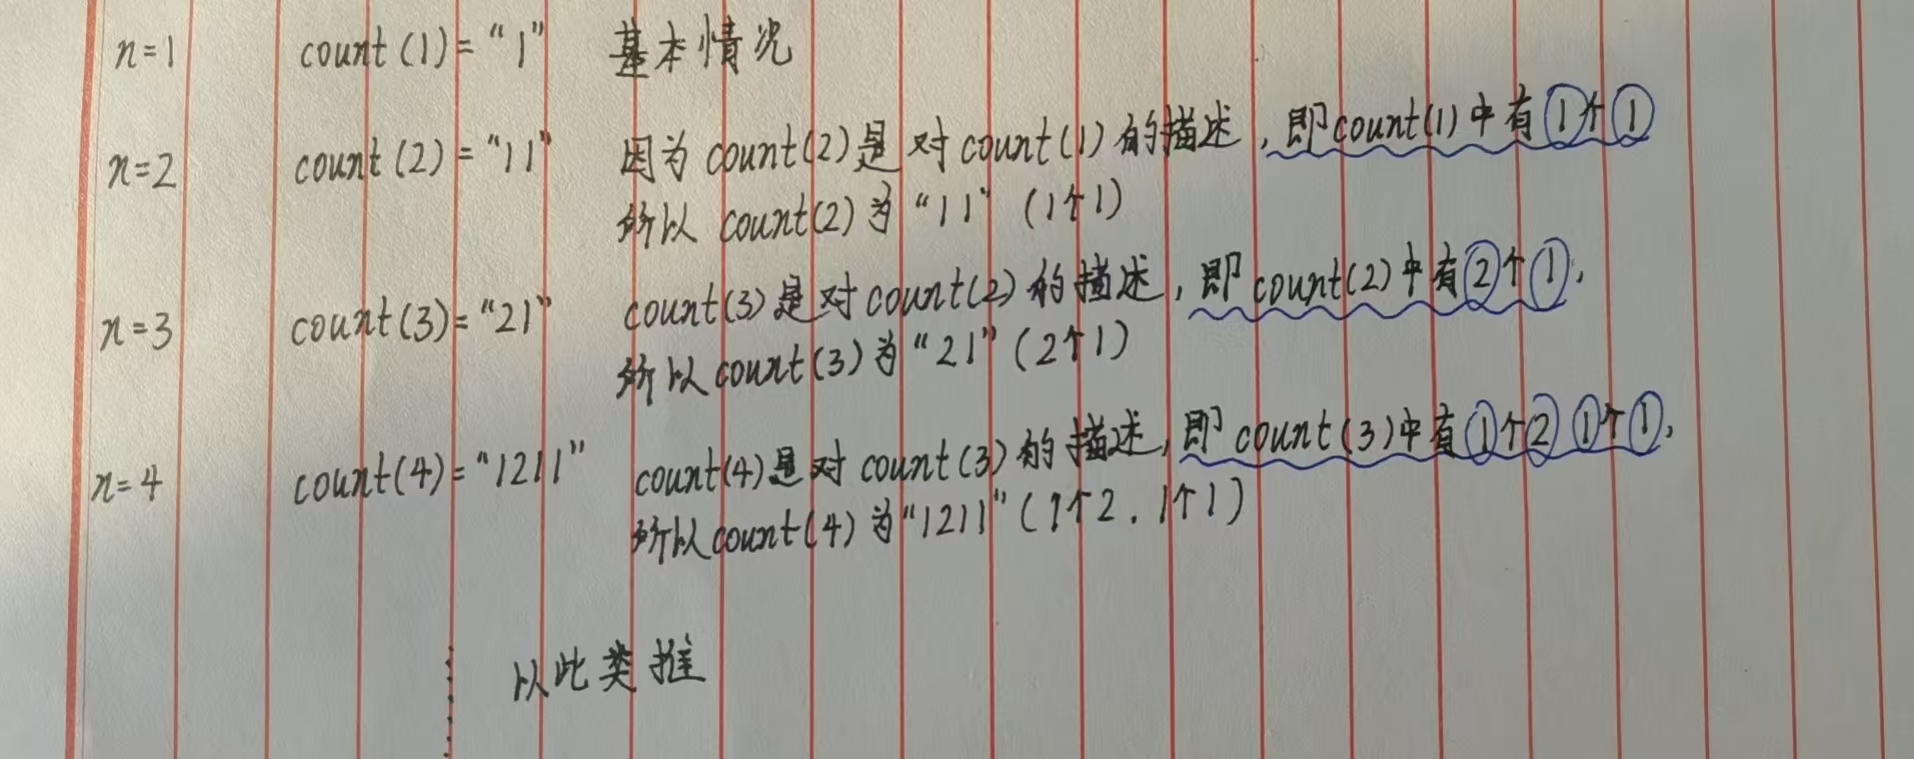 n=1 count(1)="1" 基本情况
n=2 count(2)="11" 因为count(2)是对count(1)的描述,即count(1)中有①个①
所以 count(2)为"11"(1个1)
n=3 count(3)="21" count(3)是对count(2)的描述,即count(2)中有②个①,
所以count(3)为"21"(2个1)
n=4 count(4)="1211" count(4)是对count(3)的描述,即count(3)中有①个② ①个①,
所以count(4)为"1211"(1个2.1个1)
以此类推